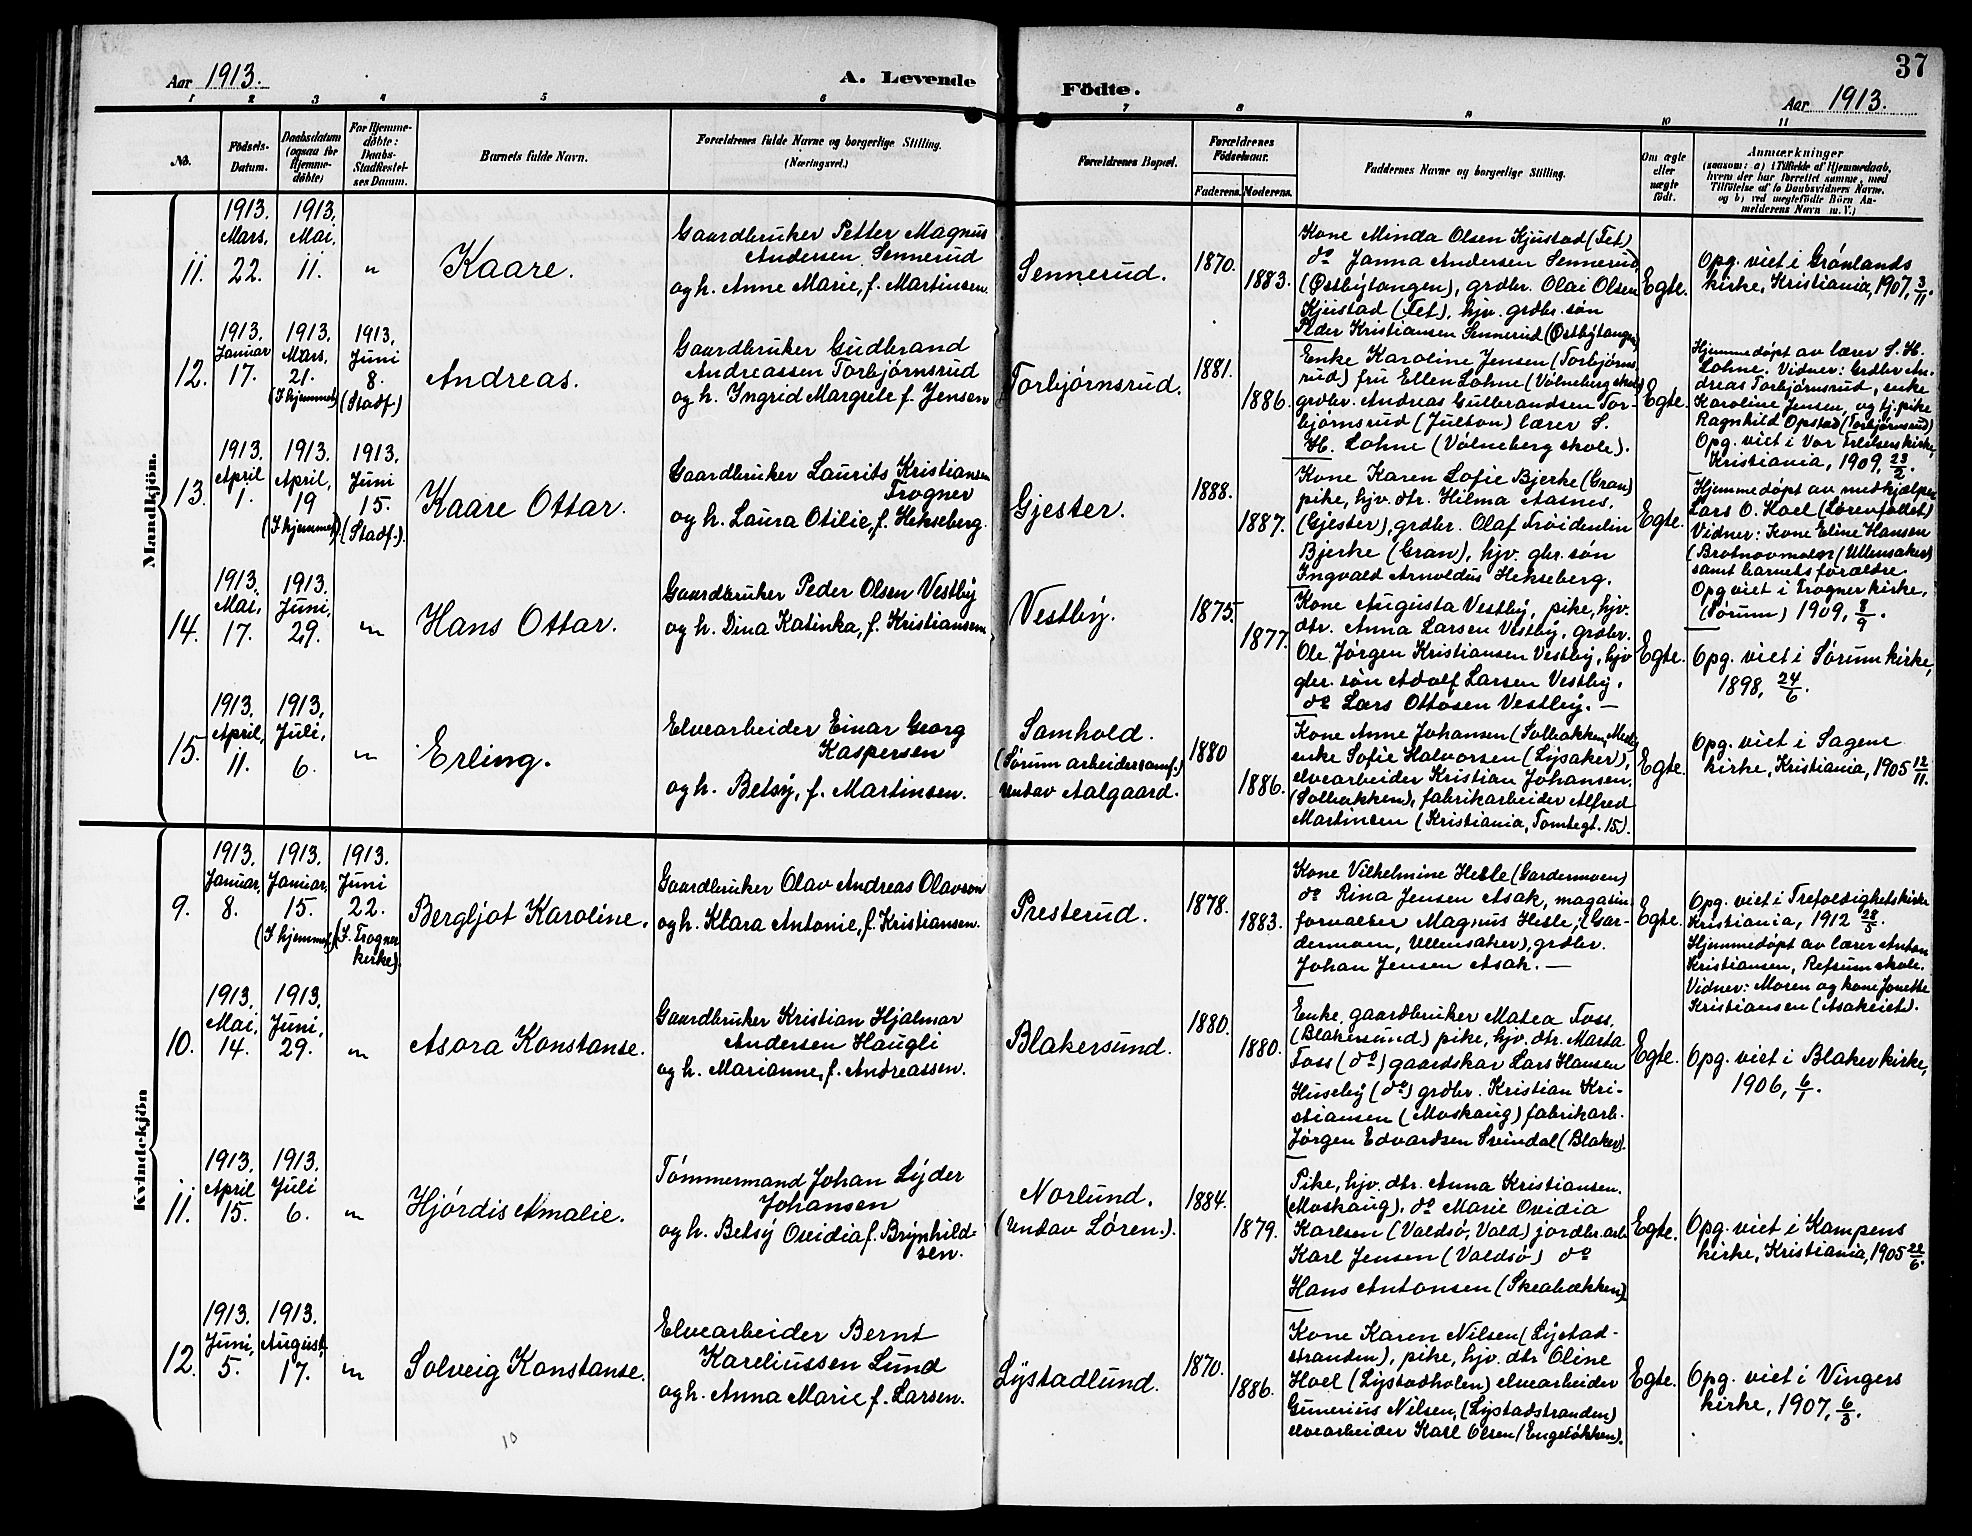 37
Aar 1913. A. Levende Födte. Aar 1913.
1 2 3 4 5 6 7 8 9 10 11
No.
Födsels-
Datum.
Daabsdatum
(ogsaa for
Hjemme-
döbte)
For Hjemme-
döbte:
Daabs-
Stadfæstel-
ses Datum.
Barnets fulde Navn.
Forældrenes fulde Navne og borgerlige Stilling.
(Næringsvei.)
Forældrenes Bopæl.
Forældrenes
Födselsaar.
Faderens. Moderens.
Faddernes Navne og borgerlige Stilling.
Om ægte
eller
uægte
födt.
Anmærkninger
(saasom: a) i Tilfælde af Hjemmedaab,
hvem der har forrettet samme, med
Tilföielse af to Daabsvidners Navne.
og b) ved uægtefödte Börn An-
melderens Navn m. V.)
Mandkjön.
11.
1913.
Mars.
22.
1913.
Mai.
11.
"
Kaare.
Gaardbruker Petter Magnus
Andersen Sennerud
og h. Anne Marie, f. Martinsen.
Sennerud.
1870.
1883.
Kone Minda Olsen Kjustad (Fet)
do Janna Andersen Sennerud
(Østbytangen), grdbr. Olai Olsen
Kjustad (Fet), hjv. grdbr. søn
Peder Kristiansen Sennerud (Østbytangen)
Egte.
Opg. viet i Grønlands
kirke, Kristiania, 1907, 3/11.
12.
1913.
Januar
17.
1913.
Mars.
21.
(I hjemmet)
1913.
Juni
8.
(Stadf.)
Andreas.
Gaardbruker Gudbrand
Andreassen Torbjørnsrud
og h. Ingrid Margrete f. Jensen
Torbjørnsrud.
1881.
1886.
Enke Karoline Jensen (Torbjørns-
rud) fru Ellen Lohne (Vølneberg skole)
grdbr. Andreas Gulbrandsen Tor-
bjørnsrud (Julton) lærer S.
H. Lohne (Vølneberg skole).
Egte.
Hjemmedøpt av lærer S. H.
Lohne. Vidner: Grdbr An-
dreas Torbjørnsrud, enke
Karoline Jensen, og tj. pike
Ragnhild Opstad (Torbjørnsrud)
Opg. viet i Vor Frelsers kirke,
Kristiania, 1909, 23/2.
13.
1913.
April
1.
1913.
April,
19
(I hjemmet)
1913.
Juni
15.
(Stadf.).
Kaare Ottar.
Gaardbruker Laurits Kristiansen
Trogner
og h. Laura Otilie, f. Hekseberg.
Gjester.
1888.
1887.
Kone Karen Lofie Bjerke (Gran)
pike, hjv. dtr. Hilma Aasnes,
(Gjester), grdbr. Olaf Froidenlin
Bjerke (Gran), hjv. gbr. søn
Ingvald Arnoldus Hekseberg.
Egte.
Hjemmedøpt av medhjælper
Lars O. Hoel (Lørenfaldet)
Vidner: Kone Eline Hansen
(Ullensaker)
samt barnets forældre.
Opg viet i Frogner kirke,
(Sørum) 1909, 8/9.
14.
1913.
Mai,
17.
1913.
Juni,
29.
"
Hans Ottar.
Gaardbruker Peder Olsen Vestby
og h. Dina Katinka, f. Kristiansen
Vestby.
1875.
1877.
Kone Augusta Vestby, pike, hjv.
dtr. Anna Larsen Vestby, grdbr.
Ole Jørgen Kristiansen Vestby, hjv
gbr. søn Adolf Larsen Vestby,
do Lars Ottosen Vestby. —
Egte.
Opg. viet i Sørum kirke,
1898, 24/6.
15.
1913.
April,
11.
1913.
Juli,
6.
"
Erling.
Elvearbeider Einar Georg
Kaspersen
og h. Betsy, f. Martinsen.
Samhold.
(Sørum arbeidersamf.)
undav Aalgaard.
1880
1886.
Kone Anne Johansen (Solbakken,
enke Sofie Halvorsen (Lysaker),
elvearbeider Kristian Johansen.
(Solbakken), fabrikarbeider Alfred
Martinsen (Kristiania, Tomtegt. 15).
Egte.
Opg. viet i Sagene
kirke, Kristiania, 1905 12/11.
Kvindekjön
9.
1913.
Januar,
8.
1913.
Januar,
15.
(I hjemmet)
1913.
Juni
22.
(I. Frogner
kirke).
Bergljot Karoline.
Gaardbruker Olav Andreas Olavson
og h. Klara Antonie, f. Kristiansen.
Presterud.
1878.
1883.
Kone Vilhelmine Hesle (Gardermoen)
do Rina Jensen Asak, magasin
forvalter Magnus Hesle, (Gar-
dermoen, Ullensaker), grdbr.
Johan Jensen Asak. —
Egte.
Opg. viet i Trefoldighetskirke
Kristiania, 1912 28/5.
Hjemmedøpt av lærer Anton
Kristiansen, Refsum skole.
Vidner: Moren og kone Jonette
Kristiansen (Asakeiet).
10.
1913.
Mai,
14.
1913.
Juni,
29.
"
Asora Konstanse.
Gaardbruker Kristian Hjalmar
Andersen Haugli
og h. Marianne, f. Andreassen.
Blakersund.
1880.
1880.
Enke, gaardbruker Matea Foss,
(Blakersund) pike, hjv. dtr. Marta
Foss (do) gaardskar Lars Hansen
Huseby (do) grdbr. Kristian Kri-
stiansen (Moskaug) fabrikarb.
Jørgen Edvardsen Svindal (Blaker).
Egte.
Opg. viet i Blaker kirke,
1906, 6/1.
11.
1913.
April
15.
1913.
Juli
6.
"
Hjørdis Amalie.
Tømmermand Johan Lyder
Johansen
og h. Betsy Ovidia f. Brynhild-
sen.
Norlund.
(undav Løren.).
1884.
1879.
Pike, hjv. dtr. Anna Kristiansen.
(Moskaug), do Marie Ovidia
Karlsen (Valdsø, Vald) jordbr. arb
Karl Jensen (Valdsø) do
Hans Antonsen (Skeabækken)
Egte.
Opg. viet i Kampens
kirke, Kristiania, 1905 22/6.
12.
1913.
Juni,
5.
1913.
August,
17.
"
Solveig Konstanse.
Elvearbeider Bernt
Kareliussen Lund
og h. Anna Marie f. Larsen.
Lystadlund.
1870.
1886.
Kone Karen Nilsen (Lystad-
stranden), pike, hjv. dtr Oline
Hoel (Lystadholen) elvearbeider
Gunerius Nilsen, (Lystadstranden)
elvearbeider Karl Olsen (Engeløkken).
Egte.
Opg. viet i Vingers
kirke, 1907, 6/3.
10